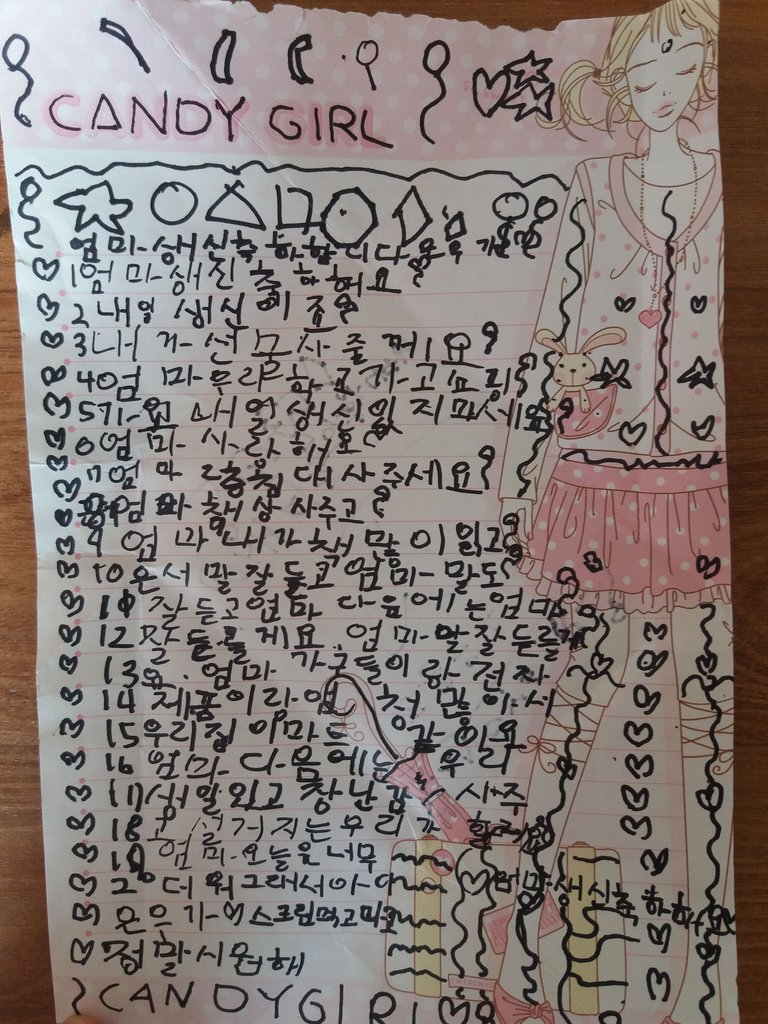 CANDY GIRL
엄마 생신축하합니다
1 엄마 생진 축하해요
2 내일 생신이죠
3 내가 선물 사줄께요
4 엄마 우리 학교가고
5 내일 생신잊지마세요
엄마 사랑해요
7 엄마 2층침대 사주세요
엄마 책상 사주고
9 엄마 내가 책 많이 읽고
10 은서 말 잘 듣고 엄마 말도
11 잘 듣고 엄마 다음에는 엄마
12 잘 들을게요. 엄마 말 잘 들를게
13 요. 엄마 가구들이랑 전자
14 제품이랑 엄청 많아서
15 우리집 이마트 같아요
16 엄마 다음에는 우리
17 장난감 사주
18 설거지는 우리가
19 엄마 오늘은 너무
20 더워 그래서 아
스크림먹고
정말시원해
엄마생신축하해요
CANDY GIRL